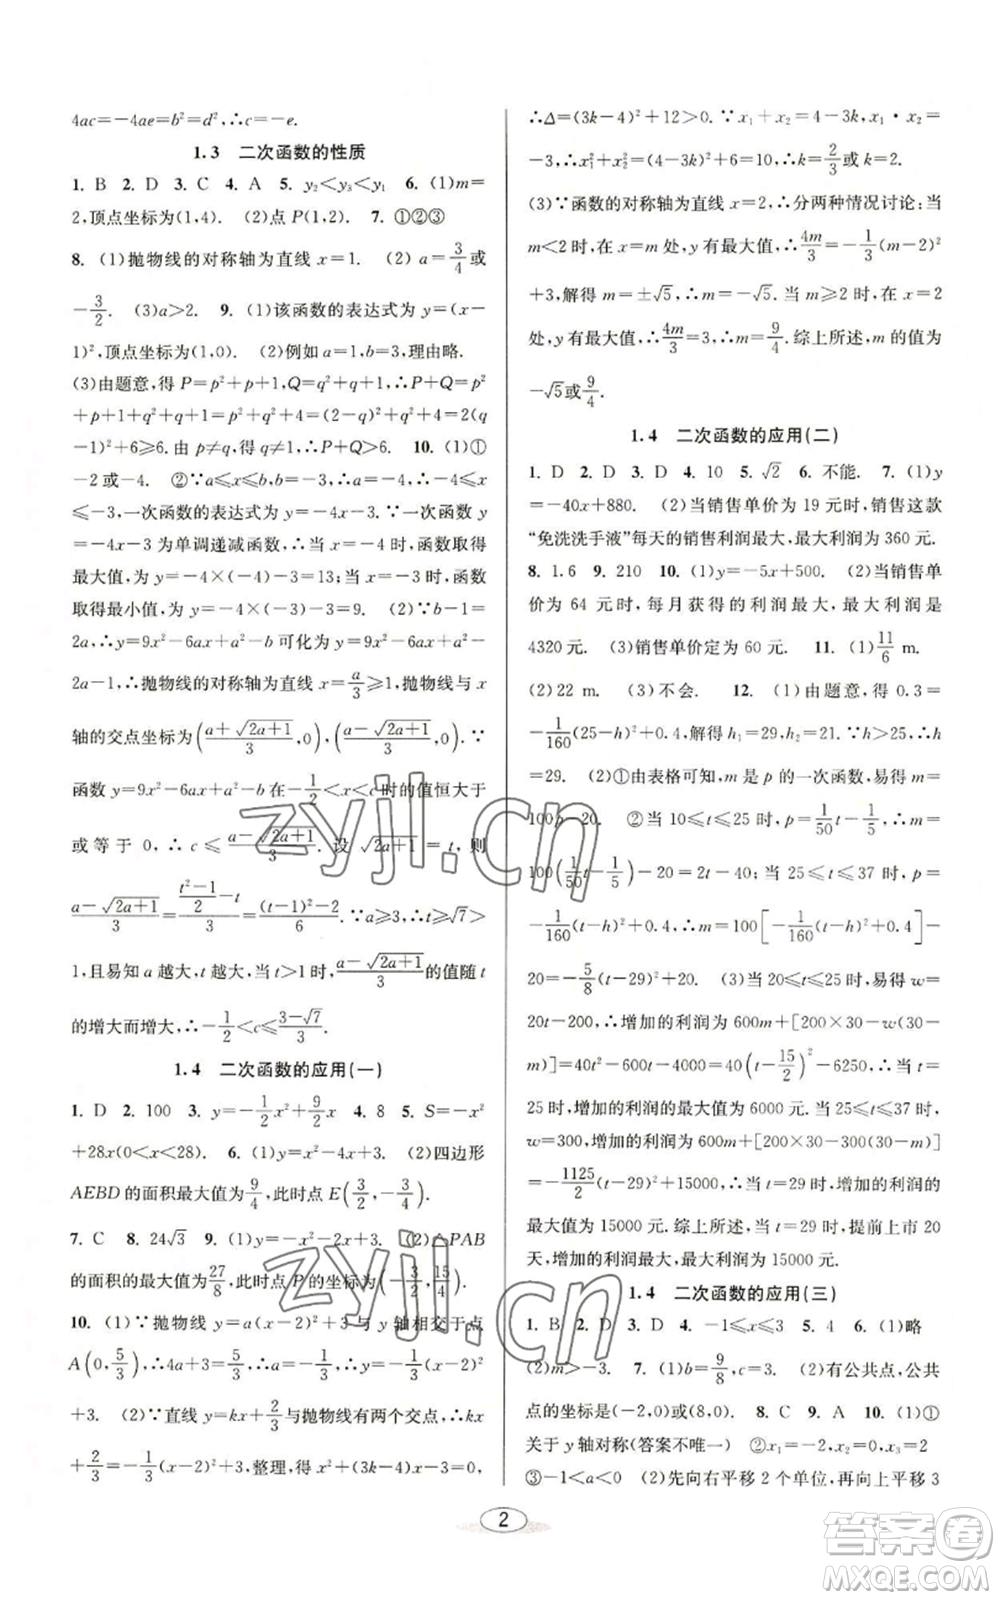 4ac=-4ae=b²=d²,∴c=-e.
1.3 二次函数的性质
1. B 2. D 3. C 4. A 5. y₂<y₃<y₁ 6. (1)m=
2,顶点坐标为(1,4). (2)点 P(1,2). 7. ①②③
8. (1)抛物线的对称轴为直线 x=1. (2) a=3/4或
-3/2. (3)a>2. 9. (1)该函数的表达式为 y=(x-
1)²,顶点坐标为(1,0). (2)例如 a=1,b=3,理由略.
(3)由题意,得 P=p²+p+1,Q=q²+q+1,∴P+Q=p²
+p+1+q²+q+1=p²+q²+4=(2-q)²+q²+4=2(q
-1)²+6≥6.由 p≠q,得 q≠1,∴P+Q>6. 10. (1)①
-2或-4. ②∵a≤x≤b,b=a+2,b=-4,∴-6≤x
≤-3,一次函数的表达式为 y=-4x-3.∵一次函数 y
=-4x-3 为单调递减函数,∴当 x=-4 时,函数取得
最大值,为 y=-4×(-4)-3=13;当 x=-3 时,函数
取得最小值,为 y=-4×(-3)-3=9. (2)∵b-1=
2a,∴y=9x²-6ax+a²-b 可化为 y=9x²-6ax+a²-
2a-1,∴抛物线的对称轴为直线 x=a/3≥1,抛物线与 x
轴的交点坐标为((a+√(2a+1))/3,0),((a-√(2a+1))/3,0).∵
函数 y=9x²-6ax+a²-b 在-1/2<x<c 时的值恒大于
或等于 0,∴c≤(a-√(2a+1))/3. 设 √(2a+1)=t,则
(a-√(2a+1))/3=((t²-1)/2-t)/3=((t-1)²-2)/6.∵a≥3,∴t≥√7>
1,且易知 a 越大,t 越大,当 t>1 时,(a-√(2a+1))/3的值随 t
的增大而增大,∴-1/2<c≤(3-√7)/3.
1.4 二次函数的应用(一)
1. D 2. 100 3. y=-1/2x²+9/2x 4. 8 5. S=-x²
+28x(0<x<28). 6. (1)y=x²-4x+3. (2)四边形
AEBD 的面积最大值为9/4,此时点 E(3/2,-3/4).
7. C 8. 24√3 9. (1)y=-x²-2x+3. (2)△PAB
的面积的最大值为27/8,此时点 P 的坐标为(-3/2,15/4).
10. (1)∵抛物线 y=a(x-2)²+3 与 y 轴相交于点
A(0,5/3),∴4a+3=5/3,∴a=-1/3,∴y=-1/3(x-2)²
+3. (2)∵直线 y=kx+2/3与抛物线有两个交点,∴kx
+2/3=-1/3(x-2)²+3,整理,得 x²+(3k-4)x-3=0,
∴Δ=(3k-4)²+12>0.∵x₁+x₂=4-3k,x₁·x₂=
-3,∴x₁²+x₂²=(4-3k)²+6=10,∴k=2/3或 k=2.
(3)∵函数的对称轴为直线 x=2,∴分两种情况讨论:当
m<2 时,在 x=m 处,y 有最大值,∴4m/3=-1/3(m-2)²
+3,解得 m=±√5,∴m=-√5. 当 m≥2 时,在 x=2
处,y 有最大值,∴4m/3=3,∴m=9/4.综上所述,m 的值为
-√5或9/4.
1.4 二次函数的应用(二)
1. D 2. D 3. D 4. 10 5. √2 6. 不能. 7. (1)y
=-40x+880. (2)当销售单价为 19 元时,销售这款
“免洗洗手液”每天的销售利润最大,最大利润为 360元.
8. 1.6 9. 210 10. (1)y=-5x+500. (2)当销售单
价为 64 元时,每月获得的利润最大,最大利润是
4320 元. (3)销售单价定为 60 元. 11. (1)11/6 m.
(2)22 m. (3)不会. 12. (1)由题意,得 0.3=
-1/160(25-h)²+0.4,解得 h₁=29,h₂=21.∵h>25,∴h
=29. (2)①由表格可知,m 是 p 的一次函数,易得 m=
100p-20. ②当 10≤t≤25 时,p=1/50t-1/5,∴m=
100(1/50t-1/5)-20=2t-40;当 25≤t≤37 时,p=
-1/160(t-h)²+0.4,∴m=100[-1/160(t-h)²+0.4]-
20=-5/8(t-29)²+20. (3)当 20≤t≤25 时,易得 w=
20t-200,∴增加的利润为 600m+[200×30-w(30
-t)]=40t²-600t-24000=40(t-15/2)²-6250,∴当 t=
25 时,增加的利润的最大值为 6000 元.当 25≤t≤37 时,
w=300,增加的利润为 600m+[200×30-300(30-t)]
=-1125/2(t-29)²+15000,∴当 t=29 时,增加的利润的
最大值为 15000 元.综上所述,当 t=29 时,提前上市 20
天,增加的利润最大,最大利润为 15000 元.
1.4 二次函数的应用(三)
1. B 2. D 3. D 4. -1≤x≤3 5. 4 6. (1)略
(2)m>-3. 7. (1)b=9/8,c=3. (2)有公共点,公共
点的坐标是(-2,0)或(8,0). 8. C 9. A 10. (1)①
关于 y 轴对称(答案不唯一) ②x₁=-2,x₂=2
③-1<a<0 (2)先向右平移 2 个单位,再向上平移 3
2
zyjl.cn
zyjl.cn
答案圈
MXQE.COM